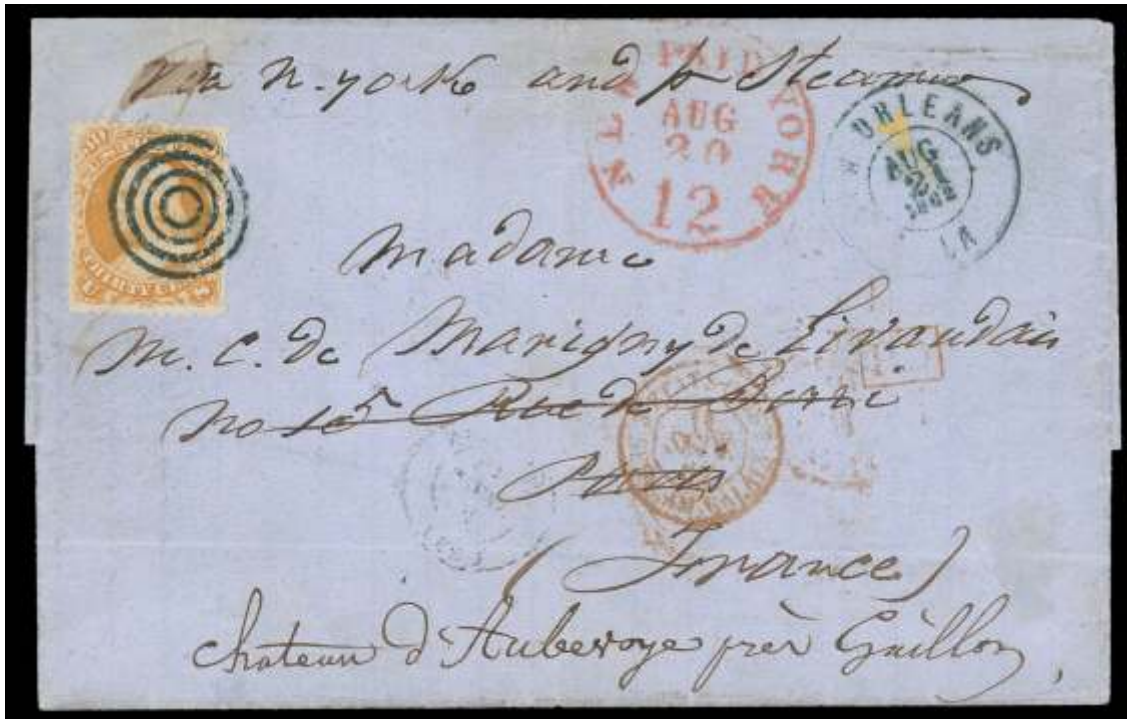 Via N. york and pr Steamer
NEW YORK
PAID
AUG
20
12
ORLEANS
AUG
1862
LA
Madame
M. C. de Marigny de Livaudais
No 15 Rue de Berri
Paris
(France)
chateau d'Aubevoye près Gaillon,